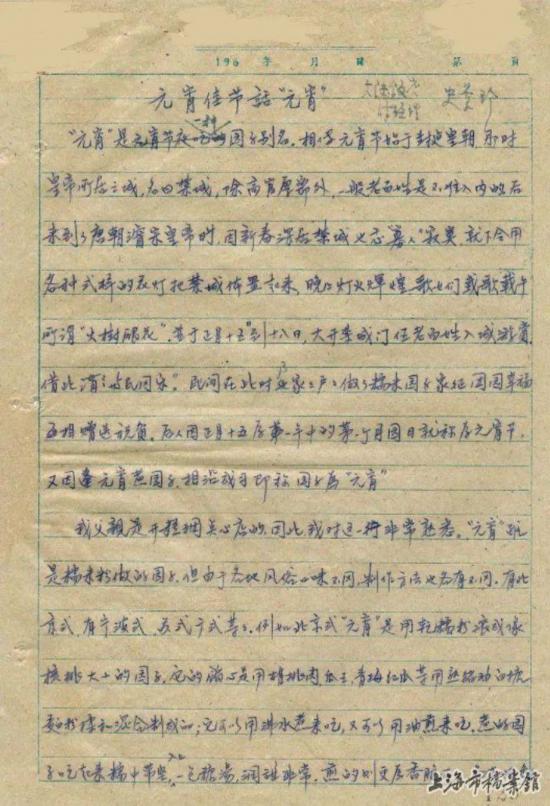 196 年 月 日 第 页
元宵佳节话“元宵”
史
“元宵”是元宵节夜吃的一种团子别名。相传元宵节始于封建皇朝，那时
皇帝所居之城，名曰禁城，除高官厚爵外，一般老百姓是不准入内的后
来到了唐朝睿宗皇帝时，因新春深居禁城也忌“寡人”寂寞，就下令用
各种式样的花灯把禁城佈置起来，晚上灯火輝煌，歌女们载歌载舞
所谓“火樹銀花”。并于正月十五到十八日，大开禁城门任老百姓入城游賞，
借此谓之“与民同乐”。民间在此时家家户户做了糯米团子象征团圆幸福
互相赠送祝贺。后人因正月十五序第一年中的第一个月圆日就称为元宵节，
又因逢元宵煮团子，相沿成习即称团子為“元宵”
我父親是开糖粥点心店的，因此，我对这一行非常熟悉。“元宵”虽
是糯米粉做的团子，但由于各地风俗口味不同，制作方法也各有不同。有北
京式，有宁波式，苏式广式等等。例如北京式“元宵”是用乾糯粉滚成像
核桃大小的团子，它的餡心是用胡桃肉瓜子，青梅红瓜等用熟猪油白糖
麵粉拌和混合制成的；它可以用沸水煮来吃，又可以用油煎来吃，煮的团
子吃起来糯中带堅，入口一包糖湯，潤甜非常，煎的则更為香脆
上海市档案馆